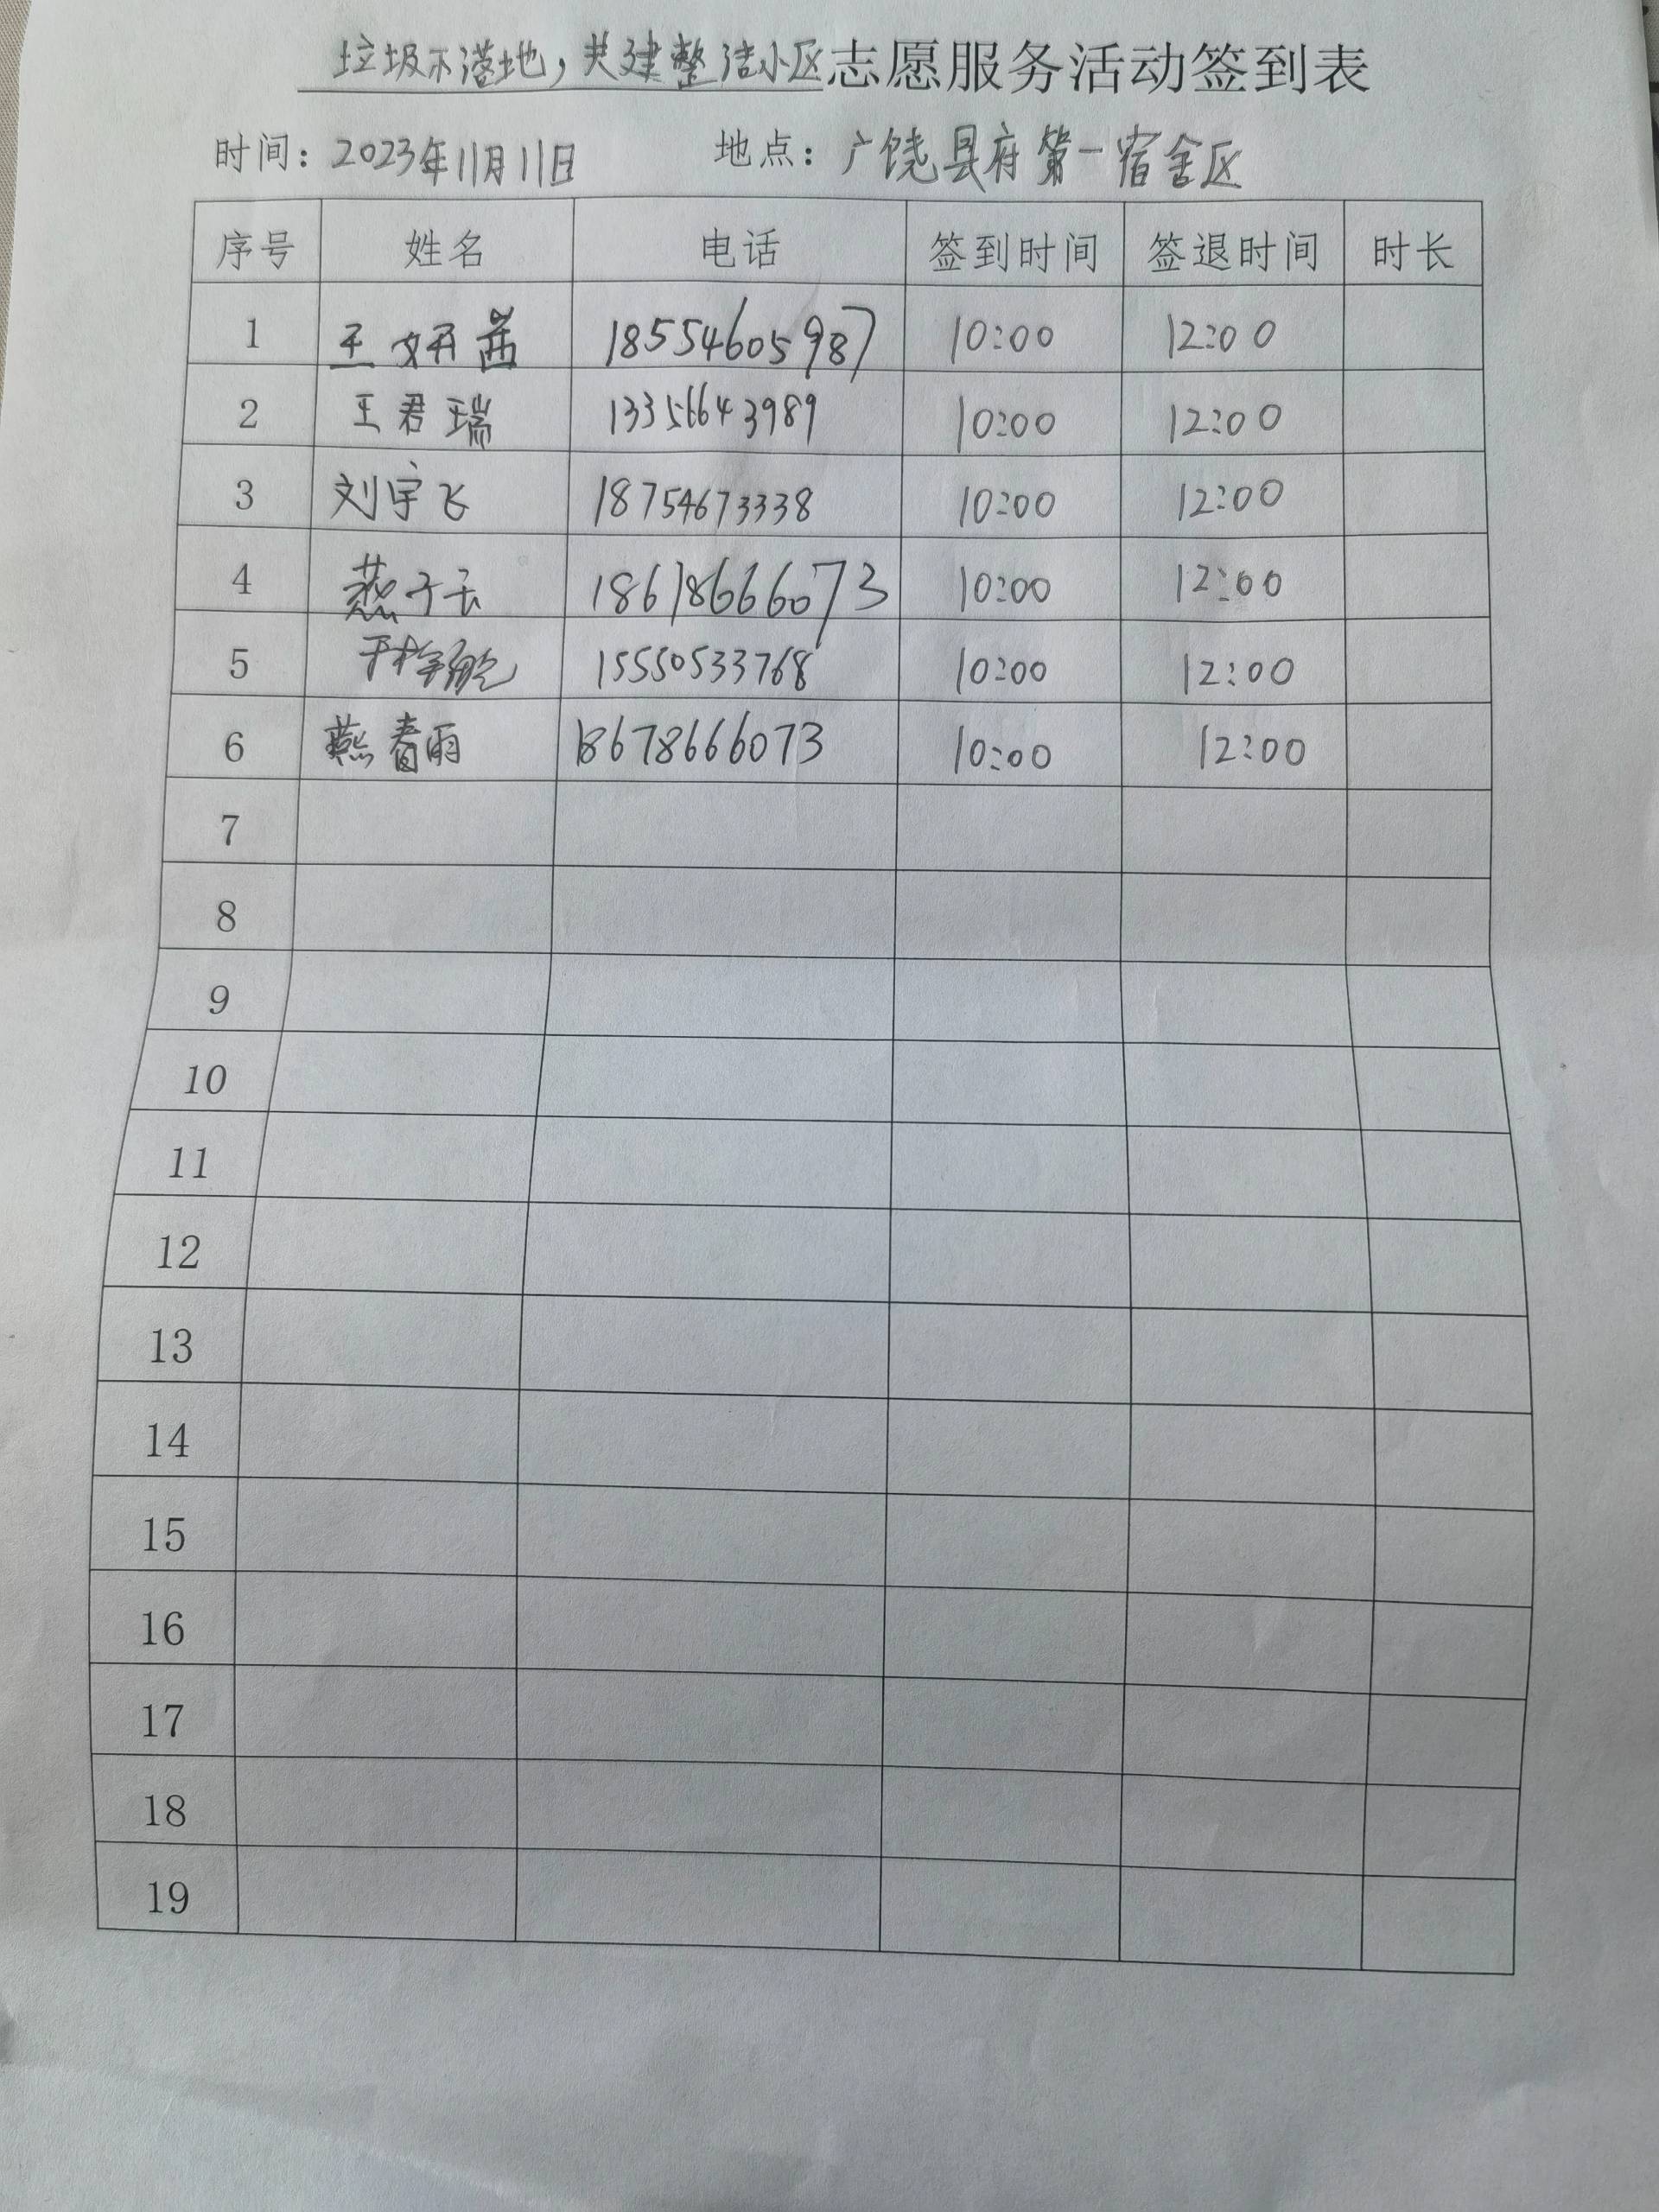 垃圾不落地，共建整洁小区志愿服务活动签到表
时间：2023年11月11日 地点：广饶县府第一宿舍区
序号 姓名 电话 签到时间 签退时间 时长
1 王妍茜 18554605987 10:00 12:00
2 王君瑞 13356643989 10:00 12:00
3 刘宇飞 18754673338 10:00 12:00
4 燕子云 18678666073 10:00 12:00
5 15550533768 10:00 12:00
6 燕春雨 18678666073 10:00 12:00
7
8
9
10
11
12
13
14
15
16
17
18
19